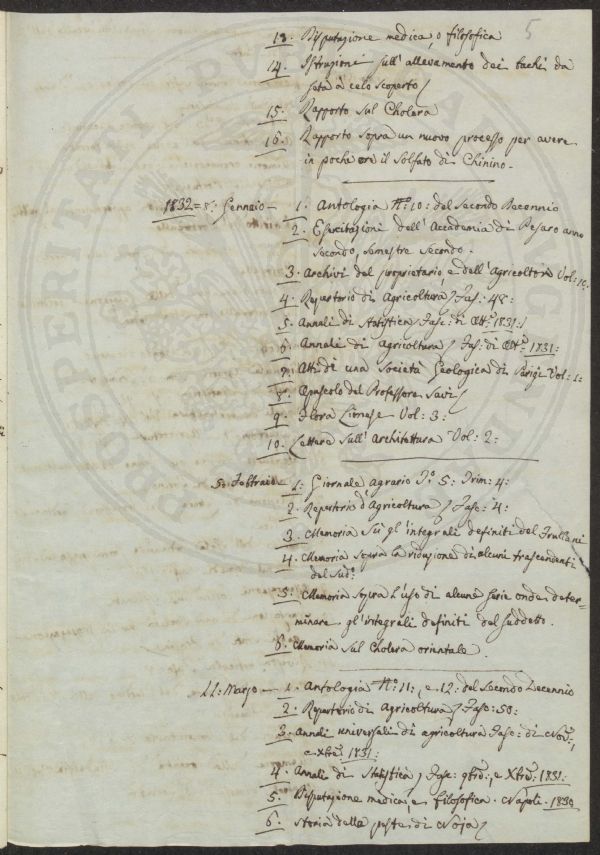 5
13. Disputazione medica, o filosofica
14. Istruzioni sull'allevamento dei bachi da
seta à celo scoperto/
15. Rapporto sul Cholera
16. Rapporto sopra un nuovo processo per avere
in poche ore il Solfato di Chinino.
1832 = 8: Gennaio — 1. Antologia N.° 10: del Secondo Decennio
2. Esercitazioni dell'Accademia di Pesaro anno
Secondo, Semestre Secondo.
3. Archivi del proprietario, e dell'Agricoltore Vol: 10.
4. Repertorio di Agricoltura/ Fas: 48:
5. Annali di Statistica/ Fasc: di Ott.e 1831:/
6. Annali di Agricoltura/ Fas: di Ott.e 1831:
7. Atti di una Società Geologica di Parigi Vol: 1:
8. Opuscolo del Professore Savi/
9. Flora Vol: 3:
10. Lettere Sull'Architettura Vol: 2:
5: Febbraio — 1: Giornale agrario N.° 5: Trim: 4:
2. Repertorio d'Agricoltura/ Fasc: 4:
3. Memoria su gl'integrali definiti del Frullani
4. Memoria sopra la riduzione di alcuni trascendenti
del Sud.°
5: Memoria sopra l'uso di alcune serie onde deter-
minare gl'integrali definiti del suddetto.
6. Memoria sul Cholera orientale.
11: Marzo — 1. Antologia N.° 11:, e 12: del Secondo Decennio
2. Repertorio di Agricoltura/ Fasc: 50:
3. Annali universali di agricoltura Fasc: di Nov.e,
e Xbre 1831:
4. Annali di Statistica/ Fasc: 9bre:, e Xbre: 1831:
5. Disputazione medica, e filosofica. Napoli. 1830
6. Storia della peste di Noja/
PROSPERITATI PUBLICAE AUGENDAE